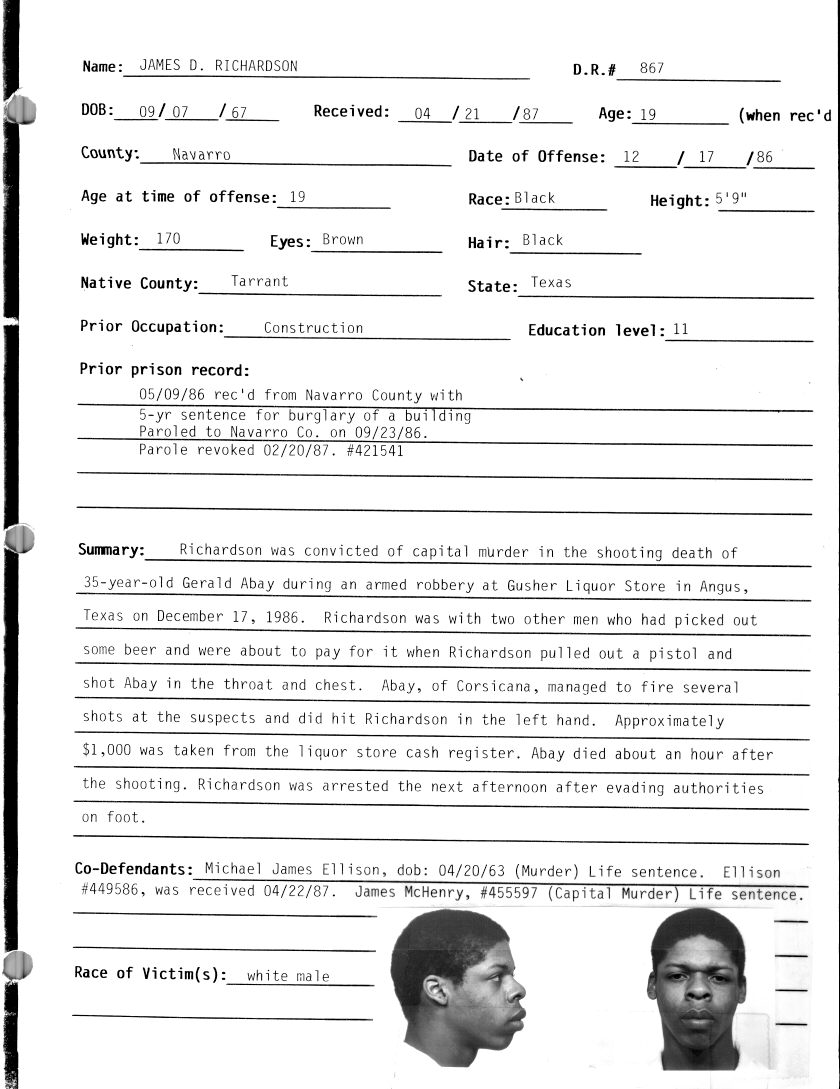 Name: JAMES D. RICHARDSON D.R.# 867
DOB: 09/ 07 / 67 Received: 04 / 21 / 87 Age: 19 (when rec'd
County: Navarro Date of Offense: 12 / 17 / 86
Age at time of offense: 19 Race: Black Height: 5'9"
Weight: 170 Eyes: Brown Hair: Black
Native County: Tarrant State: Texas
Prior Occupation: Construction Education level: 11
Prior prison record:
05/09/86 rec'd from Navarro County with
5-yr sentence for burglary of a building
Paroled to Navarro Co. on 09/23/86.
Parole revoked 02/20/87. #421541
Summary: Richardson was convicted of capital murder in the shooting death of
35-year-old Gerald Abay during an armed robbery at Gusher Liquor Store in Angus,
Texas on December 17, 1986. Richardson was with two other men who had picked out
some beer and were about to pay for it when Richardson pulled out a pistol and
shot Abay in the throat and chest. Abay, of Corsicana, managed to fire several
shots at the suspects and did hit Richardson in the left hand. Approximately
$1,000 was taken from the liquor store cash register. Abay died about an hour after
the shooting. Richardson was arrested the next afternoon after evading authorities
on foot.
Co-Defendants: Michael James Ellison, dob: 04/20/63 (Murder) Life sentence. Ellison
#449586, was received 04/22/87. James McHenry, #455597 (Capital Murder) Life sentence.
Race of Victim(s): white male